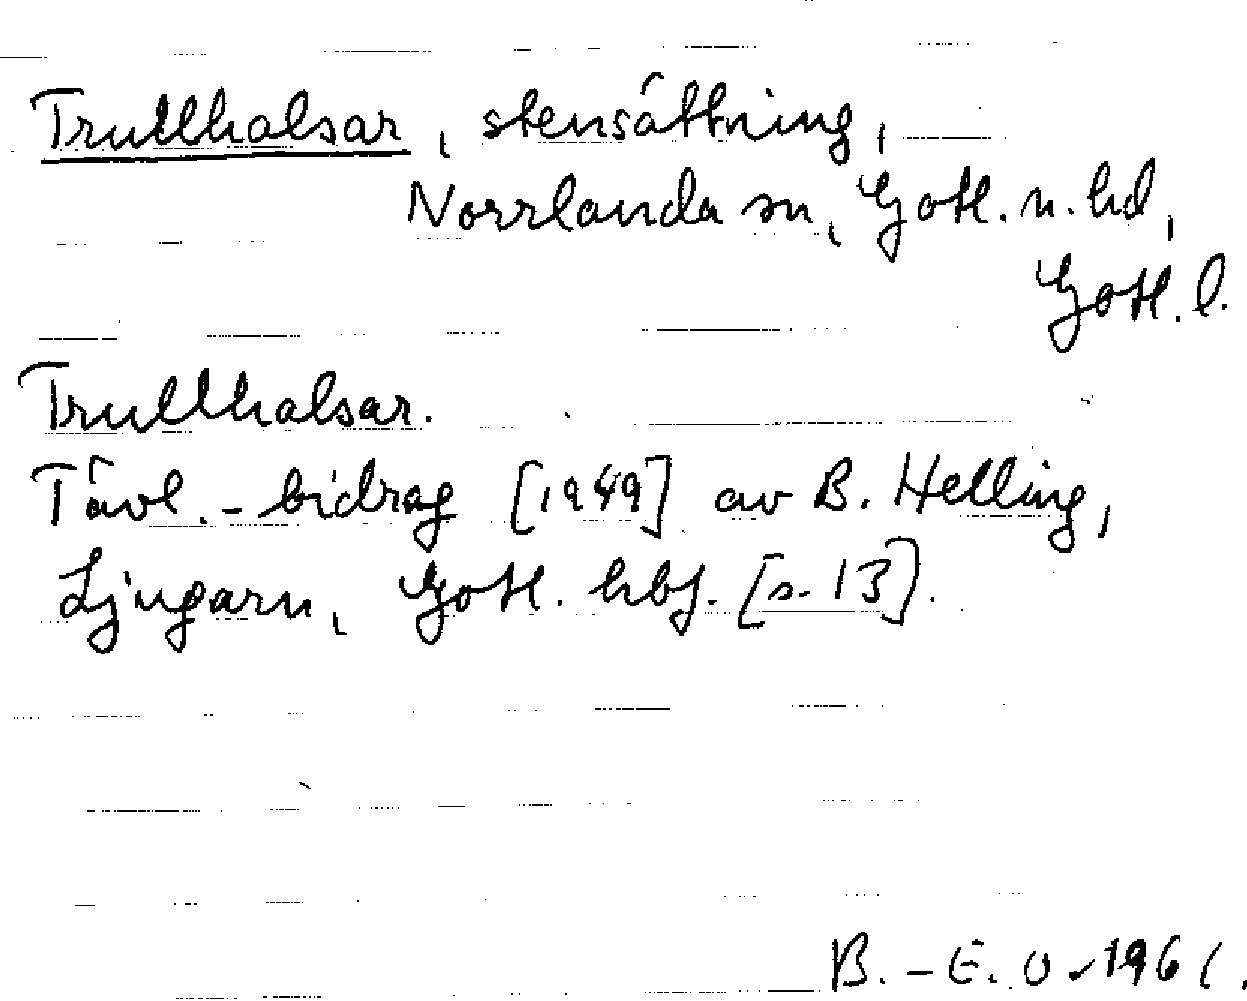 Trullhalsar, stensättning,
Norrlanda sn, Gotl. n. hd,
Gotl. l.
Trullhalsar.
Tävl.-bidrag [1949] av B. Helling,
Ljugarn, Gotl. hbf. [s. 13].
B.-E. O. 1961.